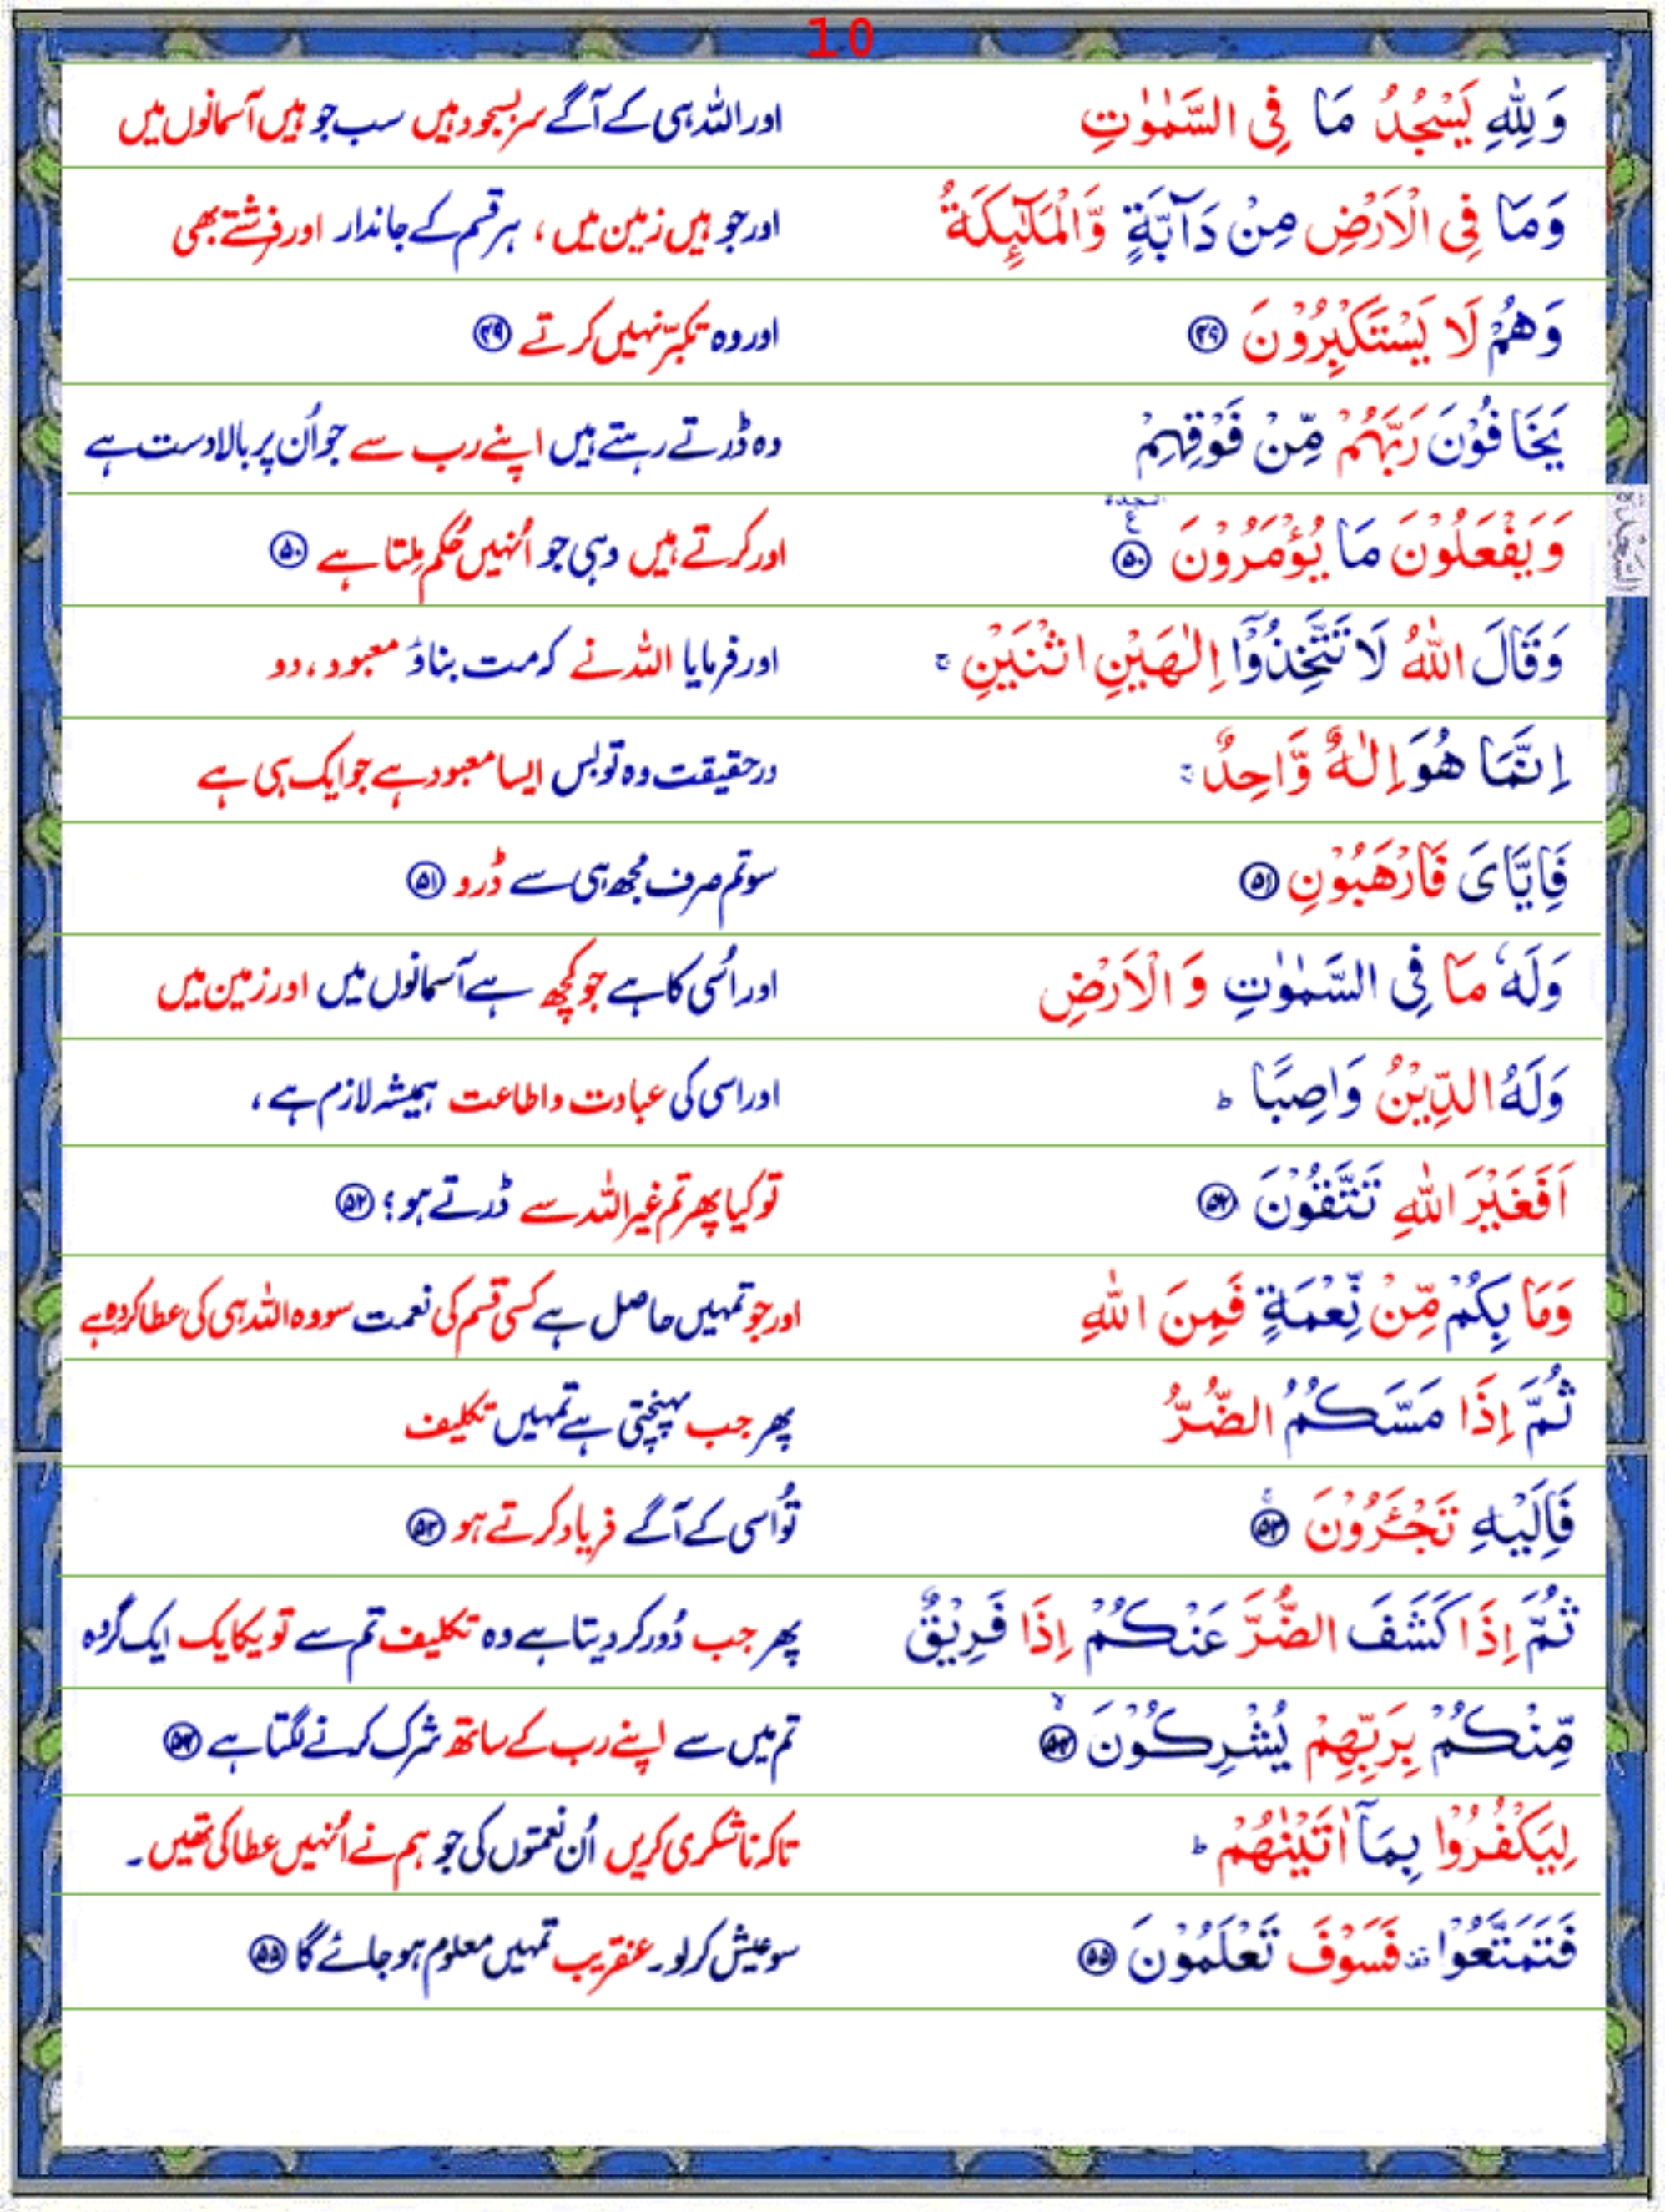 10
وَلِلّٰهِ يَسْجُدُ مَا فِى السَّمٰوٰتِ اور اللہ ہی کے آگے سربسجود ہیں سب جو ہیں آسمانوں میں
وَمَا فِى الْاَرْضِ مِنْ دَآبَّةٍ وَّالْمَلٰٓئِكَةُ اور جو ہیں زمین میں ، ہر قسم کے جاندار اور فرشتے بھی
وَهُمْ لَا يَسْتَكْبِرُوْنَ ۴۹ اور وہ تکبّر نہیں کرتے ۴۹
يَخَافُوْنَ رَبَّهُمْ مِّنْ فَوْقِهِمْ وہ ڈرتے رہتے ہیں اپنے رب سے جو اُن پر بالادست ہے
السجدة
وَيَفْعَلُوْنَ مَا يُؤْمَرُوْنَ ۵۰ اور کرتے ہیں وہی جو اُنہیں حُکم مِلتا ہے ۵۰
وَقَالَ اللّٰهُ لَا تَتَّخِذُوْٓا اِلٰهَيْنِ اثْنَيْنِ ۚ اور فرمایا اللہ نے کہ مت بناؤ معبود ، دو
اِنَّمَا هُوَ اِلٰهٌ وَّاحِدٌ ۚ درحقیقت وہ تو بس ایسا معبود ہے جو ایک ہی ہے
فَاِيَّاىَ فَارْهَبُوْنِ ۵۱ سو تم صرف مُجھ ہی سے ڈرو ۵۱
وَلَهٗ مَا فِى السَّمٰوٰتِ وَ الْاَرْضِ اور اُسی کا ہے جو کچھ ہے آسمانوں میں اور زمین میں
وَلَهُ الدِّيْنُ وَاصِبًا ؕ اور اسی کی عبادت و اطاعت ہمیشہ لازم ہے ،
اَفَغَيْرَ اللّٰهِ تَتَّقُوْنَ ۵۲ تو کیا پھر تم غیر اللہ سے ڈرتے ہو ؛ ۵۲
وَمَا بِكُمْ مِّنْ نِّعْمَةٍ فَمِنَ اللّٰهِ اور جو تمہیں حاصل ہے کسی قسم کی نعمت سو وہ اللہ ہی کی عطا کردہ ہے
ثُمَّ اِذَا مَسَّكُمُ الضُّرُّ پھر جب پہنچتی ہے تمہیں تکلیف
فَاِلَيْهِ تَجْئَرُوْنَ ۵۳ تو اُسی کے آگے فریاد کرتے ہو ۵۳
ثُمَّ اِذَا كَشَفَ الضُّرَّ عَنْكُمْ اِذَا فَرِيْقٌ پھر جب دُور کر دیتا ہے وہ تکلیف تم سے تو یکایک ایک گروہ
مِّنْكُمْ بِرَبِّهِمْ يُشْرِكُوْنَ ۙ ۵۴ تم میں سے اپنے رب کے ساتھ شرک کرنے لگتا ہے ۵۴
لِيَكْفُرُوْا بِمَآ اٰتَيْنٰهُمْ ؕ تاکہ ناشکری کریں اُن نعمتوں کی جو ہم نے اُنہیں عطا کی تھیں ۔
فَتَمَتَّعُوْا فَسَوْفَ تَعْلَمُوْنَ ۵۵ سو عیش کر لو ۔ عنقریب تمہیں معلوم ہو جائے گا ۵۵